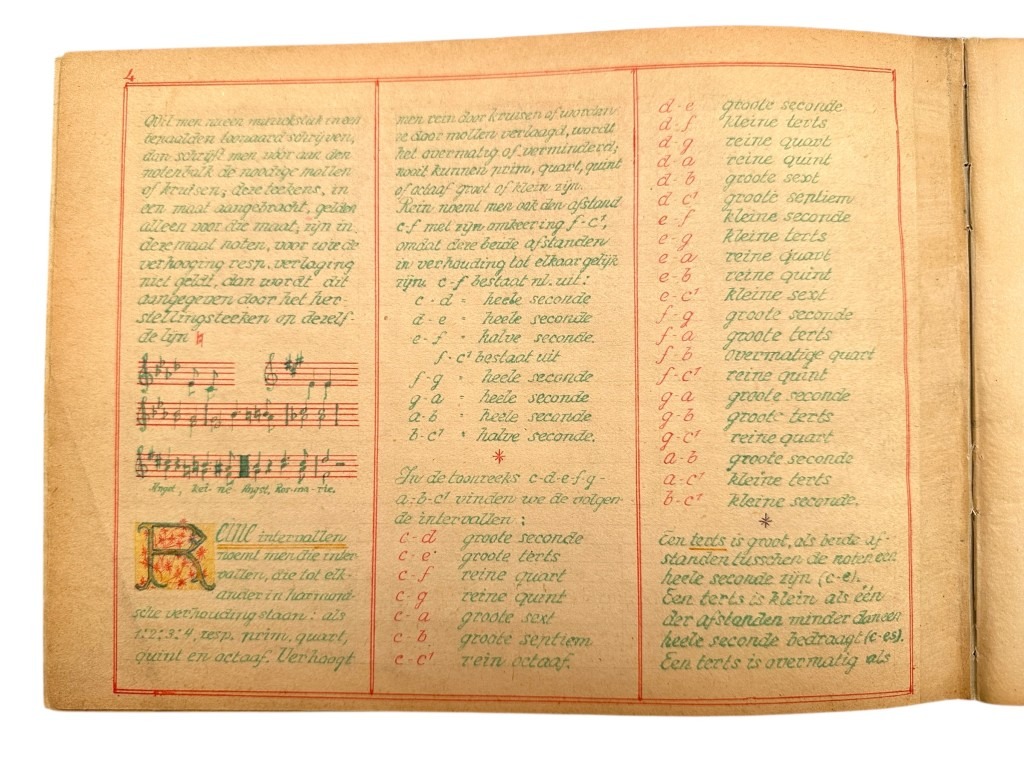 4
Wil men nu een muziekstuk in een
bepaalden toonaard schrijven,
dan schrijft men vóór aan den
notenbalk de noodige mollen
of kruisen; deze teekens, in
een maat aangebracht, gelden
alleen voor die maat; zijn in
deze maat noten, voor wie de
verhooging resp. verlaging
niet geldt, dan wordt dit
aangegeven door het her-
stellingsteeken op dezelf-
de lijn ♮
Angst, kei-ne Angst, Ros-ma-rie.
Reine intervallen
noemt men die inter-
vallen, die tot elk-
ander in harmoni-
sche verhouding staan: als
1:2:3:4, resp. prim, quart,
quint en octaaf. Verhoogt
men rein door kruisen of worden
ze door mollen verlaagd, wordt
het overmatig of verminderd;
nooit kunnen prim, quart, quint
of octaaf groot of klein zijn.
Rein noemt men ook den afstand
c-f met zijn omkeering f-c¹,
omdat deze beide afstanden
in verhouding tot elkaar gelijk
zijn. c-f bestaat nl. uit:
c-d = heele seconde
d-e = heele seconde
e-f = halve seconde.
f-c¹ bestaat uit
f-g = heele seconde
g-a = heele seconde
a-b = heele seconde
b-c¹ = halve seconde.
*
In de toonreeks c-d-e-f-g-
a-b-c¹ vinden we de volgen-
de intervallen:
c-d groote seconde
c-e groote terts
c-f reine quart
c-g reine quint
c-a groote sext
c-b groote septiem
c-c¹ rein octaaf.
d-e groote seconde
d-f kleine terts
d-g reine quart
d-a reine quint
d-b groote sext
d-c¹ groote septiem
e-f kleine seconde
e-g kleine terts
e-a reine quart
e-b reine quint
e-c¹ kleine sext
f-g groote seconde
f-a groote terts
f-b overmatige quart
f-c¹ reine quint
g-a groote seconde
g-b groote terts
g-c¹ reine quart
a-b groote seconde
a-c¹ kleine terts
b-c¹ kleine seconde.
*
Een terts is groot, als beide af-
standen tusschen de noten een
heele seconde zijn (c-e).
Een terts is klein als één
der afstanden minder dan een
heele seconde bedraagt (c-es).
Een terts is overmatig als